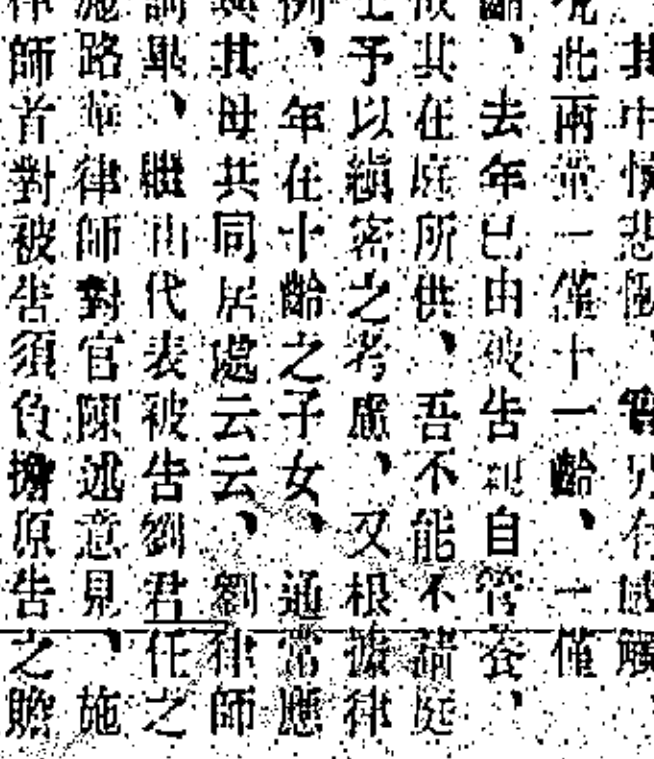 其中
况此兩童一僅十一齡、一僅
齡、去年已由被告親自管養、
故其在庭所供、吾不能不請庭
上予以縝密之考慮、又根據律
例、年在十齡之子女、通常應
與其母共同居處云云、劉律師
詞畢、繼由代表被告劉君任之
施路華律師對官陳述意見、施
律師首對被告須負擔原告之贍